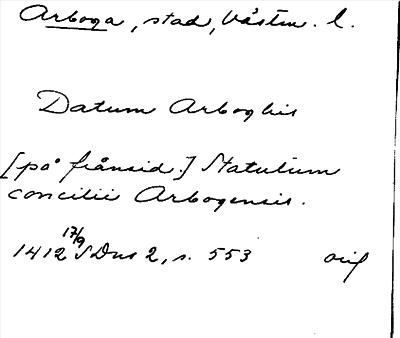 Arboga, stad, Västm. l.
Datum Arboghis
[på frånsid.] Statutum
concilii Arbogensis.
1412 17/9 SDns 2, s. 553 orig